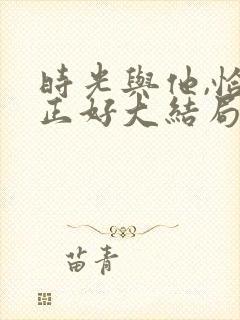 時光與他,恰
正好大結局
苗青